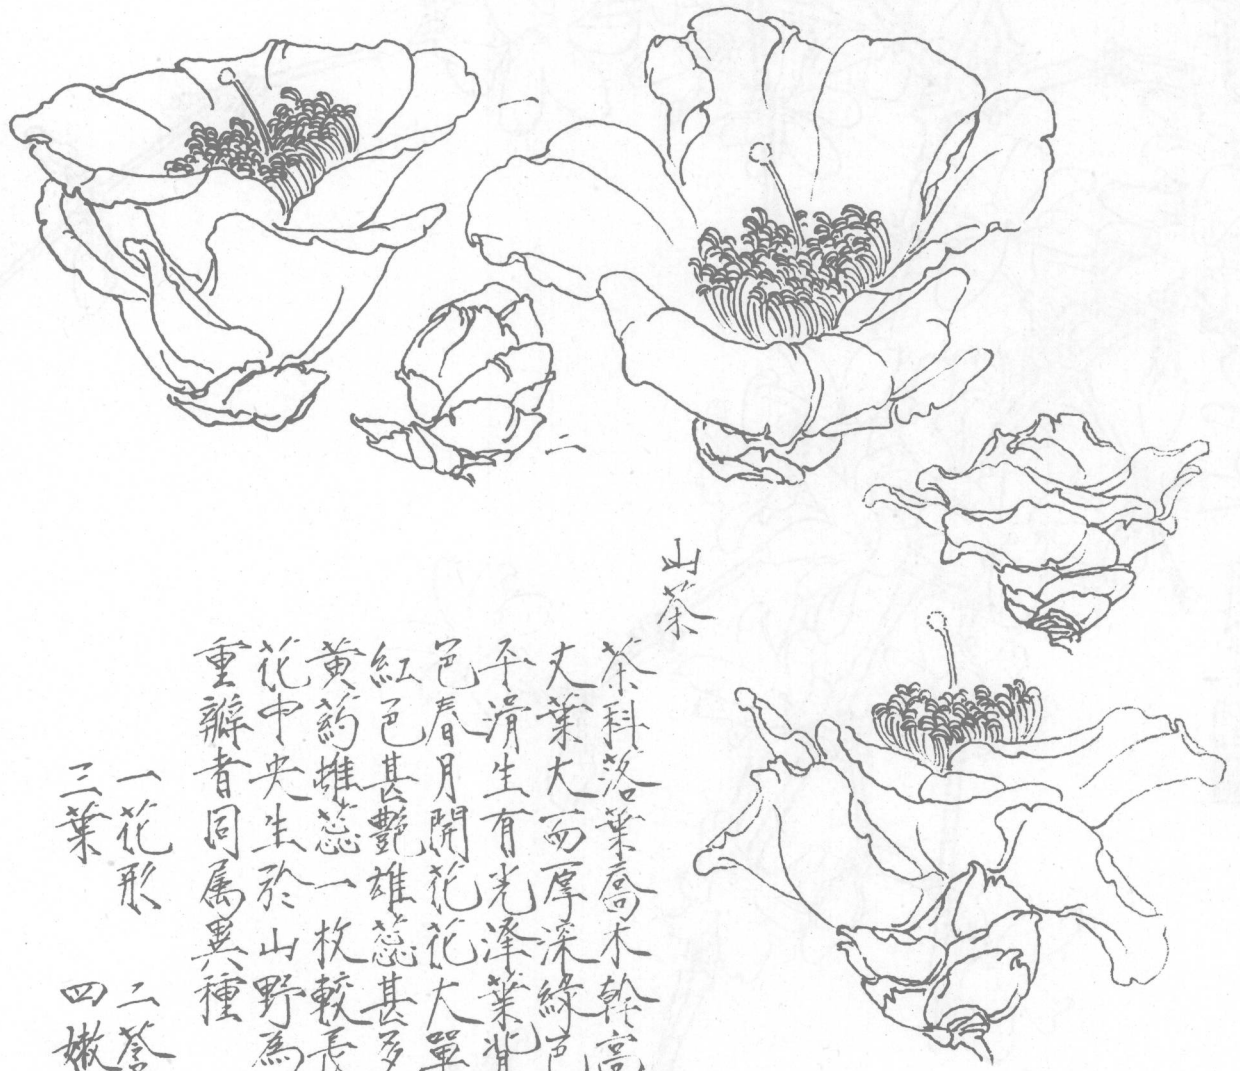 一
二
山茶
茶科落葉喬木幹高
丈葉大而厚深綠色
平滑生有光澤葉背
色春月開花花大單
紅色甚艷雄蕊甚多
黃葯雌蕊一枚較長
花中央生於山野為
重瓣者同属異種
一花形 二
三葉 四嫩